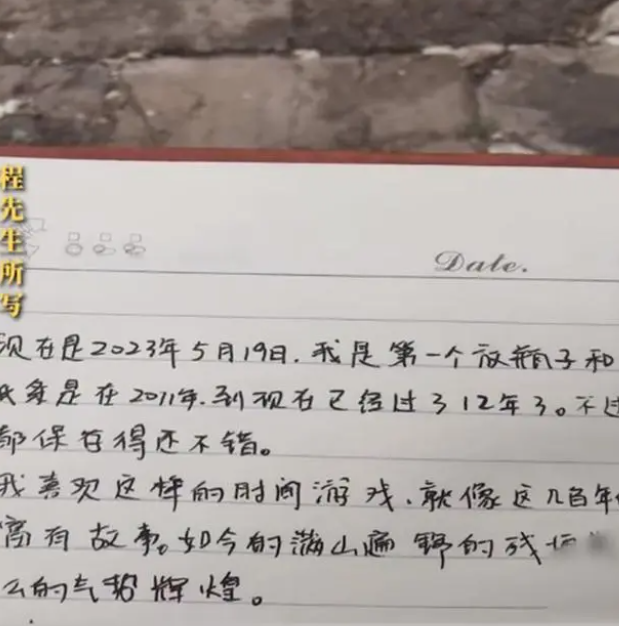 程先生所写
Date.
现在是2023年5月19日.我是第一个放瓶子和
是在2011年.到现在已经过了12年了。不过
都保存得还不错。
我喜欢这样的时间游戏、就像这几百年
富有故事。如今的满山遍野的残
么的气势辉煌。